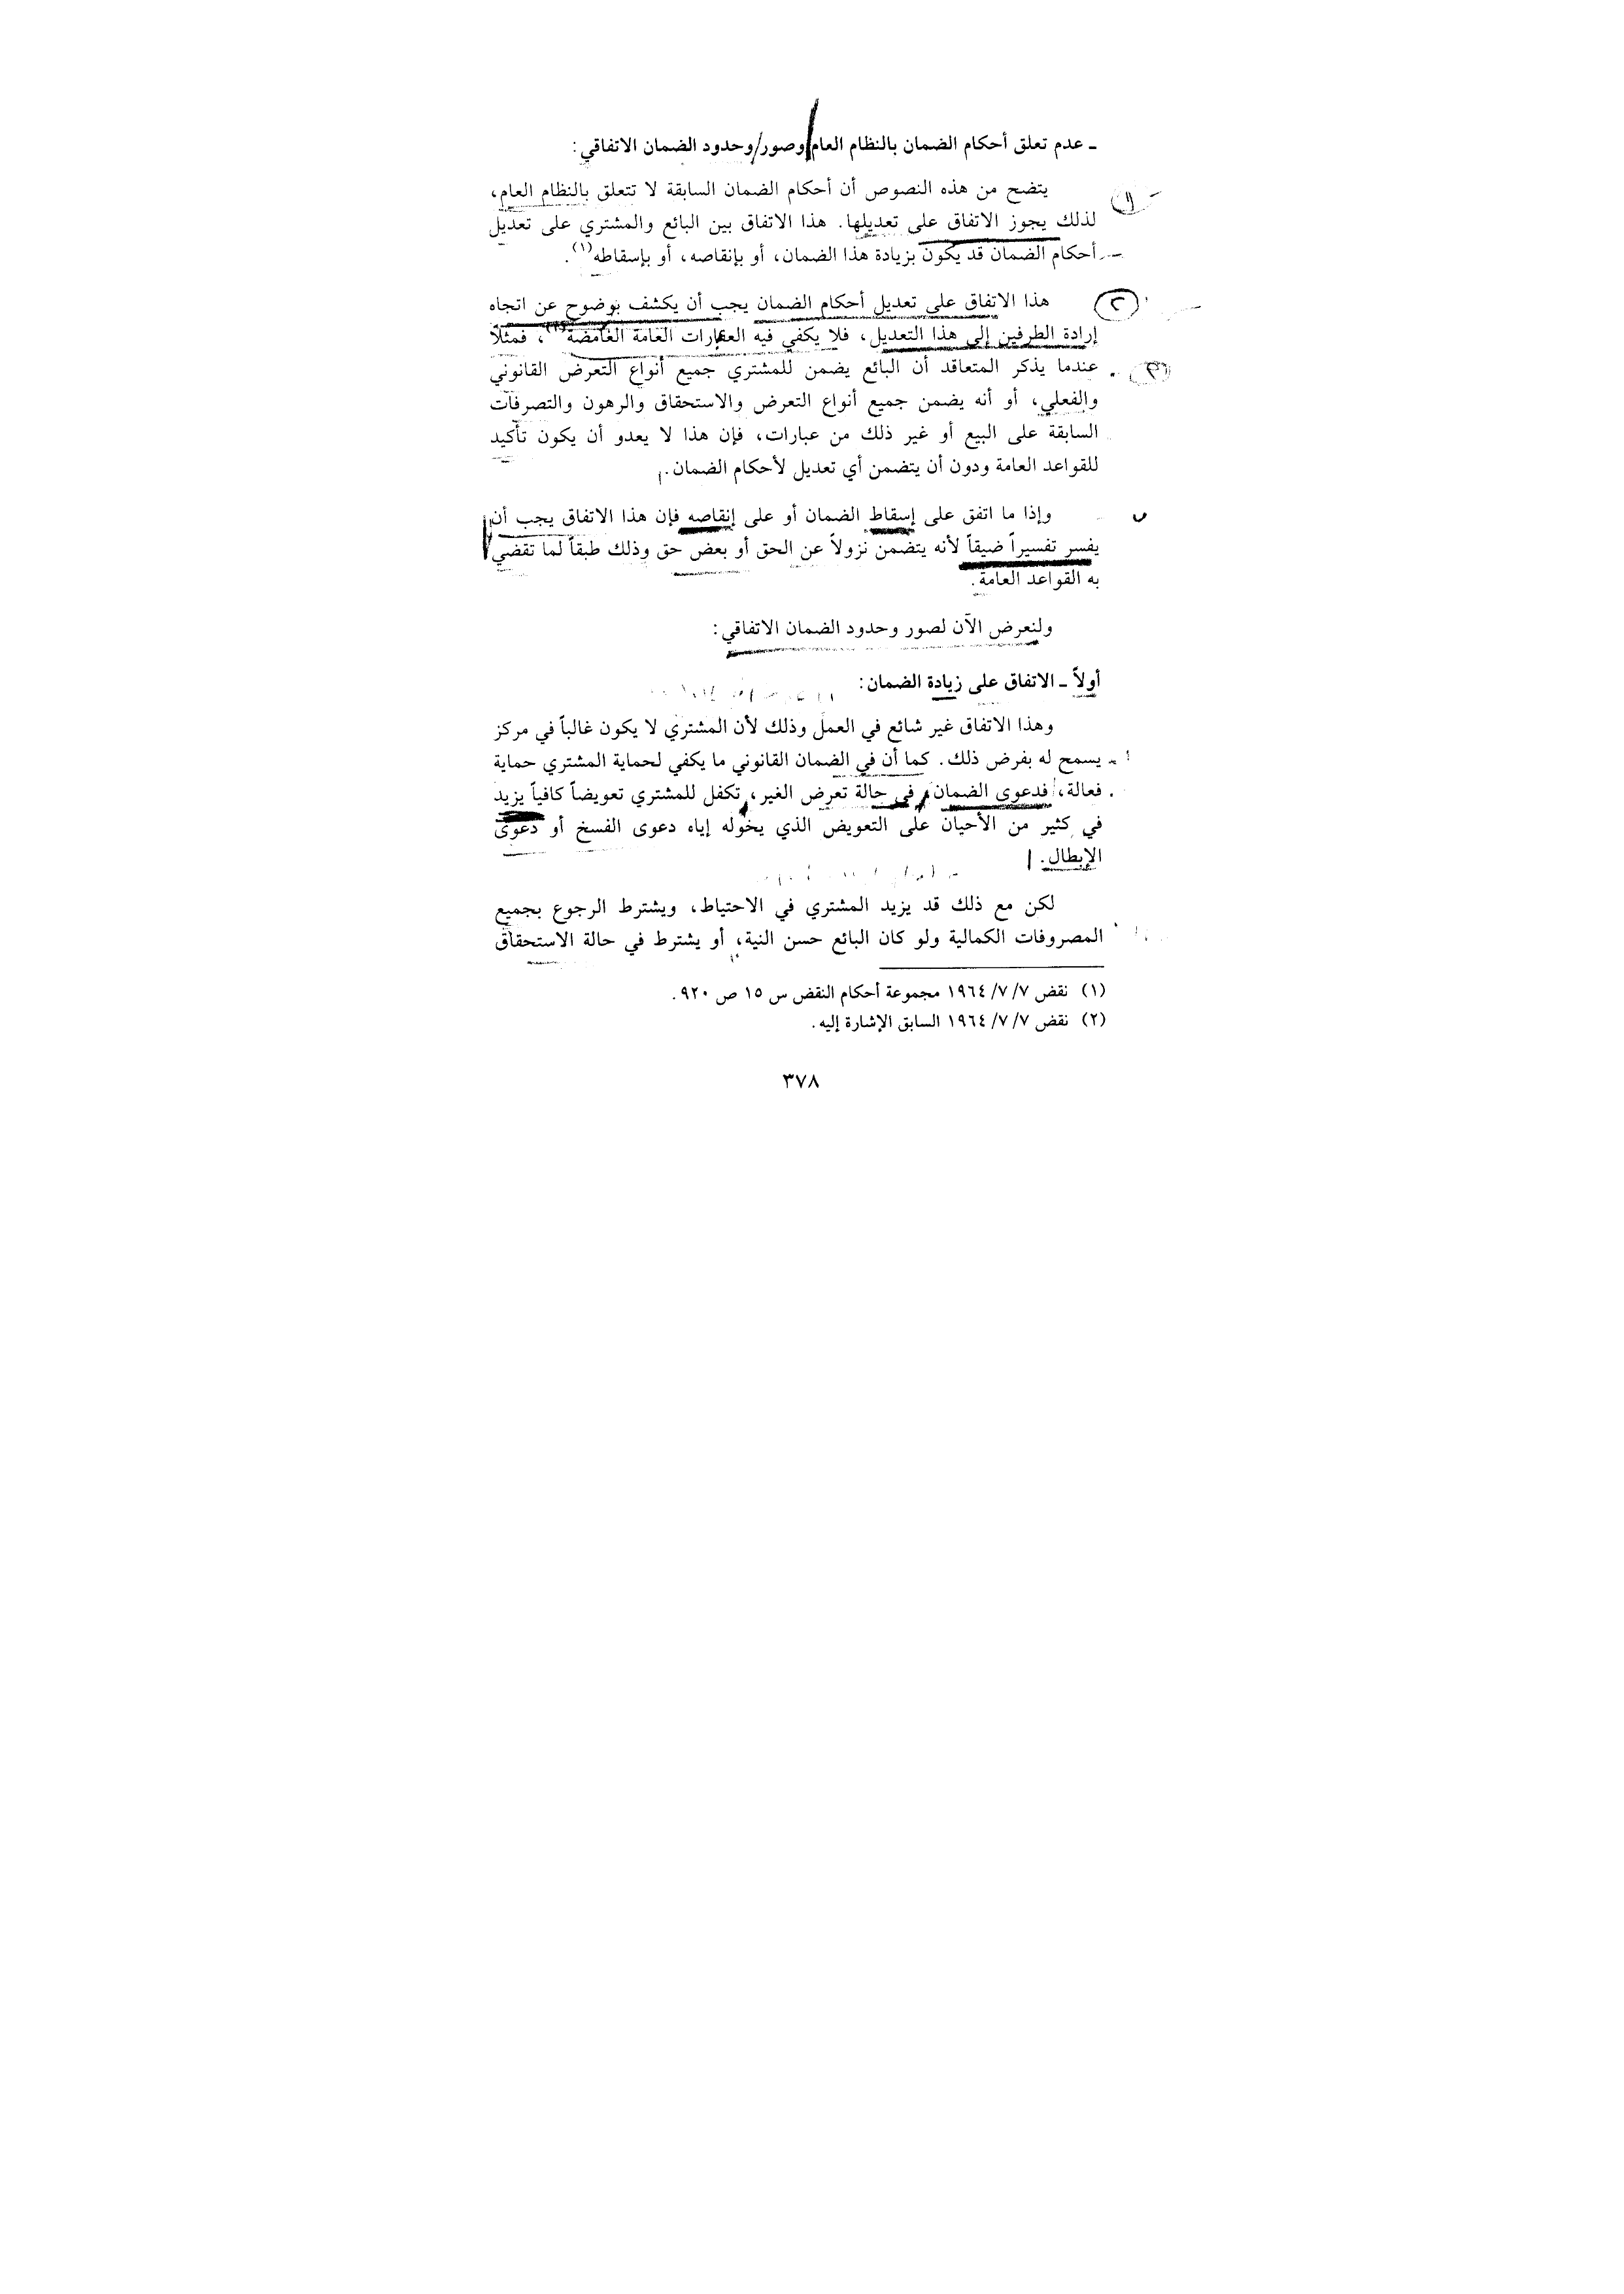 ـ عدم تعلق أحكام الضمان بالنظام العام وصور وحدود الضمان الاتفاقي:
يتضح من هذه النصوص أن أحكام الضمان السابقة لا تتعلق بالنظام العام،
لذلك يجوز الاتفاق على تعديلها. هذا الاتفاق بين البائع والمشتري على تعديل
أحكام الضمان قد يكون بزيادة هذا الضمان، أو بإنقاصه، أو بإسقاطه(١).
هذا الاتفاق على تعديل أحكام الضمان يجب أن يكشف بوضوح عن اتجاه
إرادة الطرفين إلى هذا التعديل، فلا يكفي فيه العبارات العامة الغامضة(٢)، فمثلاً
عندما يذكر المتعاقد أن البائع يضمن للمشتري جميع أنواع التعرض القانوني
والفعلي، أو أنه يضمن جميع أنواع التعرض والاستحقاق والرهون والتصرفات
السابقة على البيع أو غير ذلك من عبارات، فإن هذا لا يعدو أن يكون تأكيد
للقواعد العامة ودون أن يتضمن أي تعديل لأحكام الضمان.
وإذا ما اتفق على إسقاط الضمان أو على إنقاصه فإن هذا الاتفاق يجب أن
يفسر تفسيراً ضيقاً لأنه يتضمن نزولاً عن الحق أو بعض حق وذلك طبقاً لما تقضي
به القواعد العامة.
ولنعرض الآن لصور وحدود الضمان الاتفاقي:
أولاً ـ الاتفاق على زيادة الضمان:
وهذا الاتفاق غير شائع في العمل وذلك لأن المشتري لا يكون غالباً في مركز
يسمح له بفرض ذلك. كما أن في الضمان القانوني ما يكفي لحماية المشتري حماية
فعالة، فدعوى الضمان، في حالة تعرض الغير، تكفل للمشتري تعويضاً كافياً يزيد
في كثير من الأحيان على التعويض الذي يخوله إياه دعوى الفسخ أو دعوى
الإبطال.
لكن مع ذلك قد يزيد المشتري في الاحتياط، ويشترط الرجوع بجميع
المصروفات الكمالية ولو كان البائع حسن النية، أو يشترط في حالة الاستحقاق
(١) نقض ٧/ ٧/ ١٩٦٤ مجموعة أحكام النقض س ١٥ ص ٩٢٠.
(٢) نقض ٧/ ٧/ ١٩٦٤ السابق الإشارة إليه.
٣٧٨